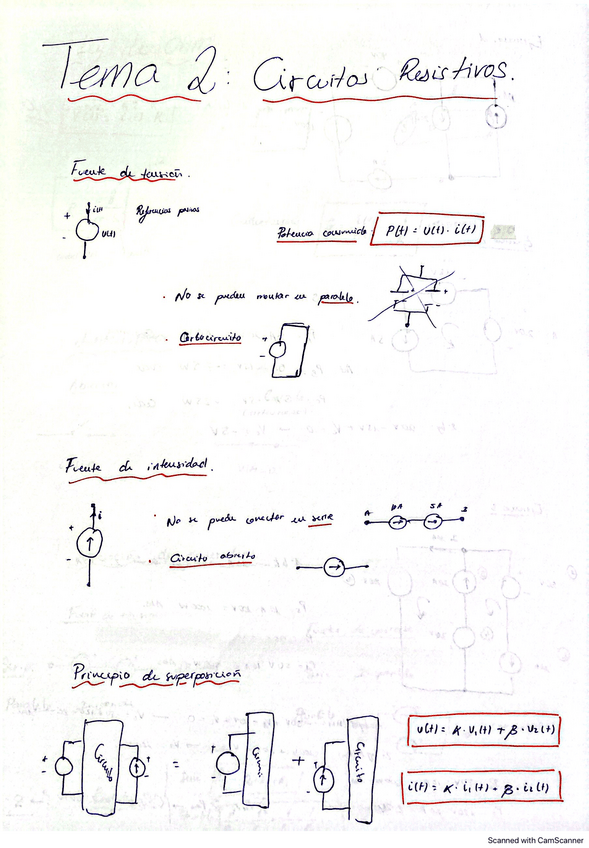 Tema 2: Circuitos Resistivos.
Fuente de tensión.
+ i(t) Referencias pasivas
- U(t)
Potencia consumida: P(t) = U(t) · i(t)
· No se pueden montar en paralelo.
· Cortocircuito
+
-
Fuente de intensidad.
+ i
-
· No se puede conectar en serie
A 5A B
· Circuito abierto
Principio de superposición
+ - Circuito + - = + - Circuito + + - Circuito
u(t) = α · U₁(t) + β · U₂(t)
i(t) = α · i₁(t) + β · i₂(t)
Scanned with CamScanner